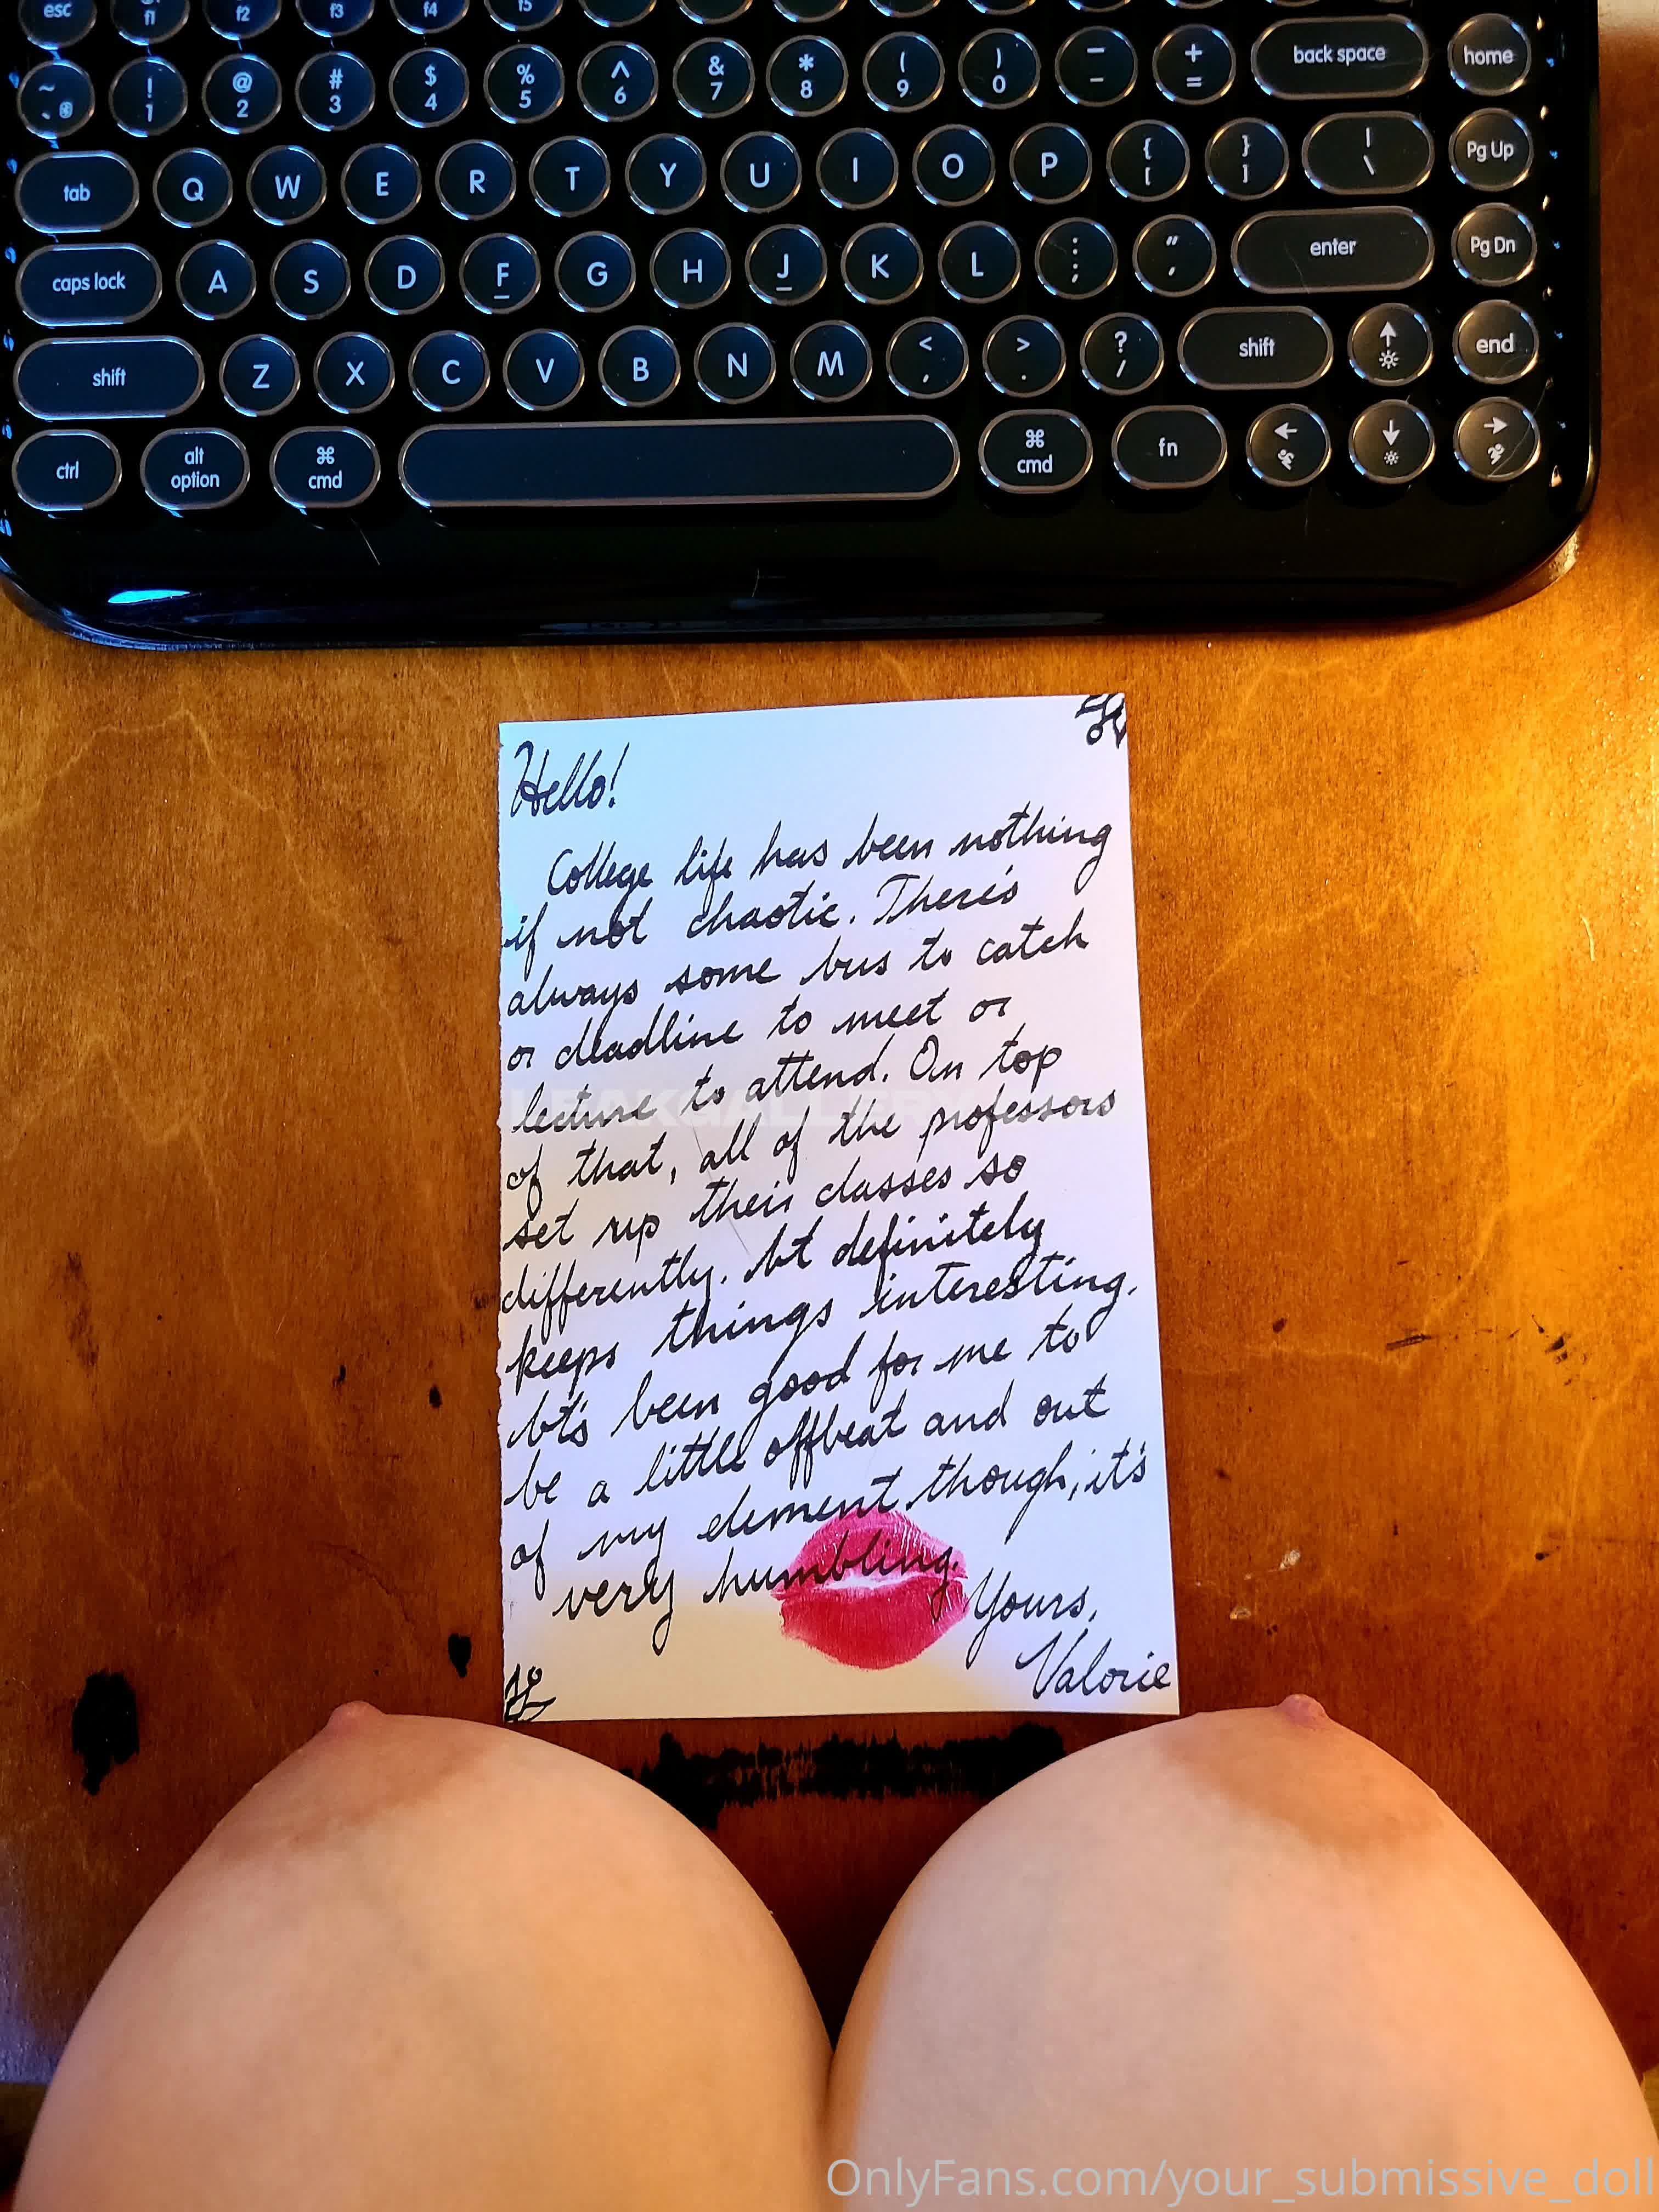 esc
f1
f2
f3
f4
f5
~ ! @ # $ % ^ & * ( ) — +
` 1 2 3 4 5 6 7 8 9 0 - = back space home
tab Q W E R T Y U I O P { [ } ] | \ Pg Up
caps lock A S D F G H J K L : ; " ' enter Pg Dn
shift Z X C V B N M < , > . ? / shift end
ctrl alt option ⌘ cmd ⌘ cmd fn
Hello!
College life has been nothing
if not chaotic. There's
always some bus to catch
or deadline to meet or
lecture to attend. On top
of that, all of the professors
set up their classes so
differently. It definitely
keeps things interesting.
It's been good for me to
be a little offbeat and out
of my element though, it's
very humbling.
Yours,
Valorie
OnlyFans.com/your_submissive_doll